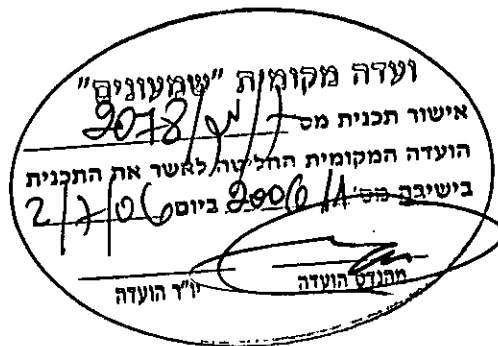 ועדה מקומית "שמעונים"
אישור תכנית מס 7/מק/2078
הועדה המקומית החליטה לאשר את התכנית
בישיבה מס' 2006/11 ביום 2/7/06
יו"ר הועדה מהנדס הועדה